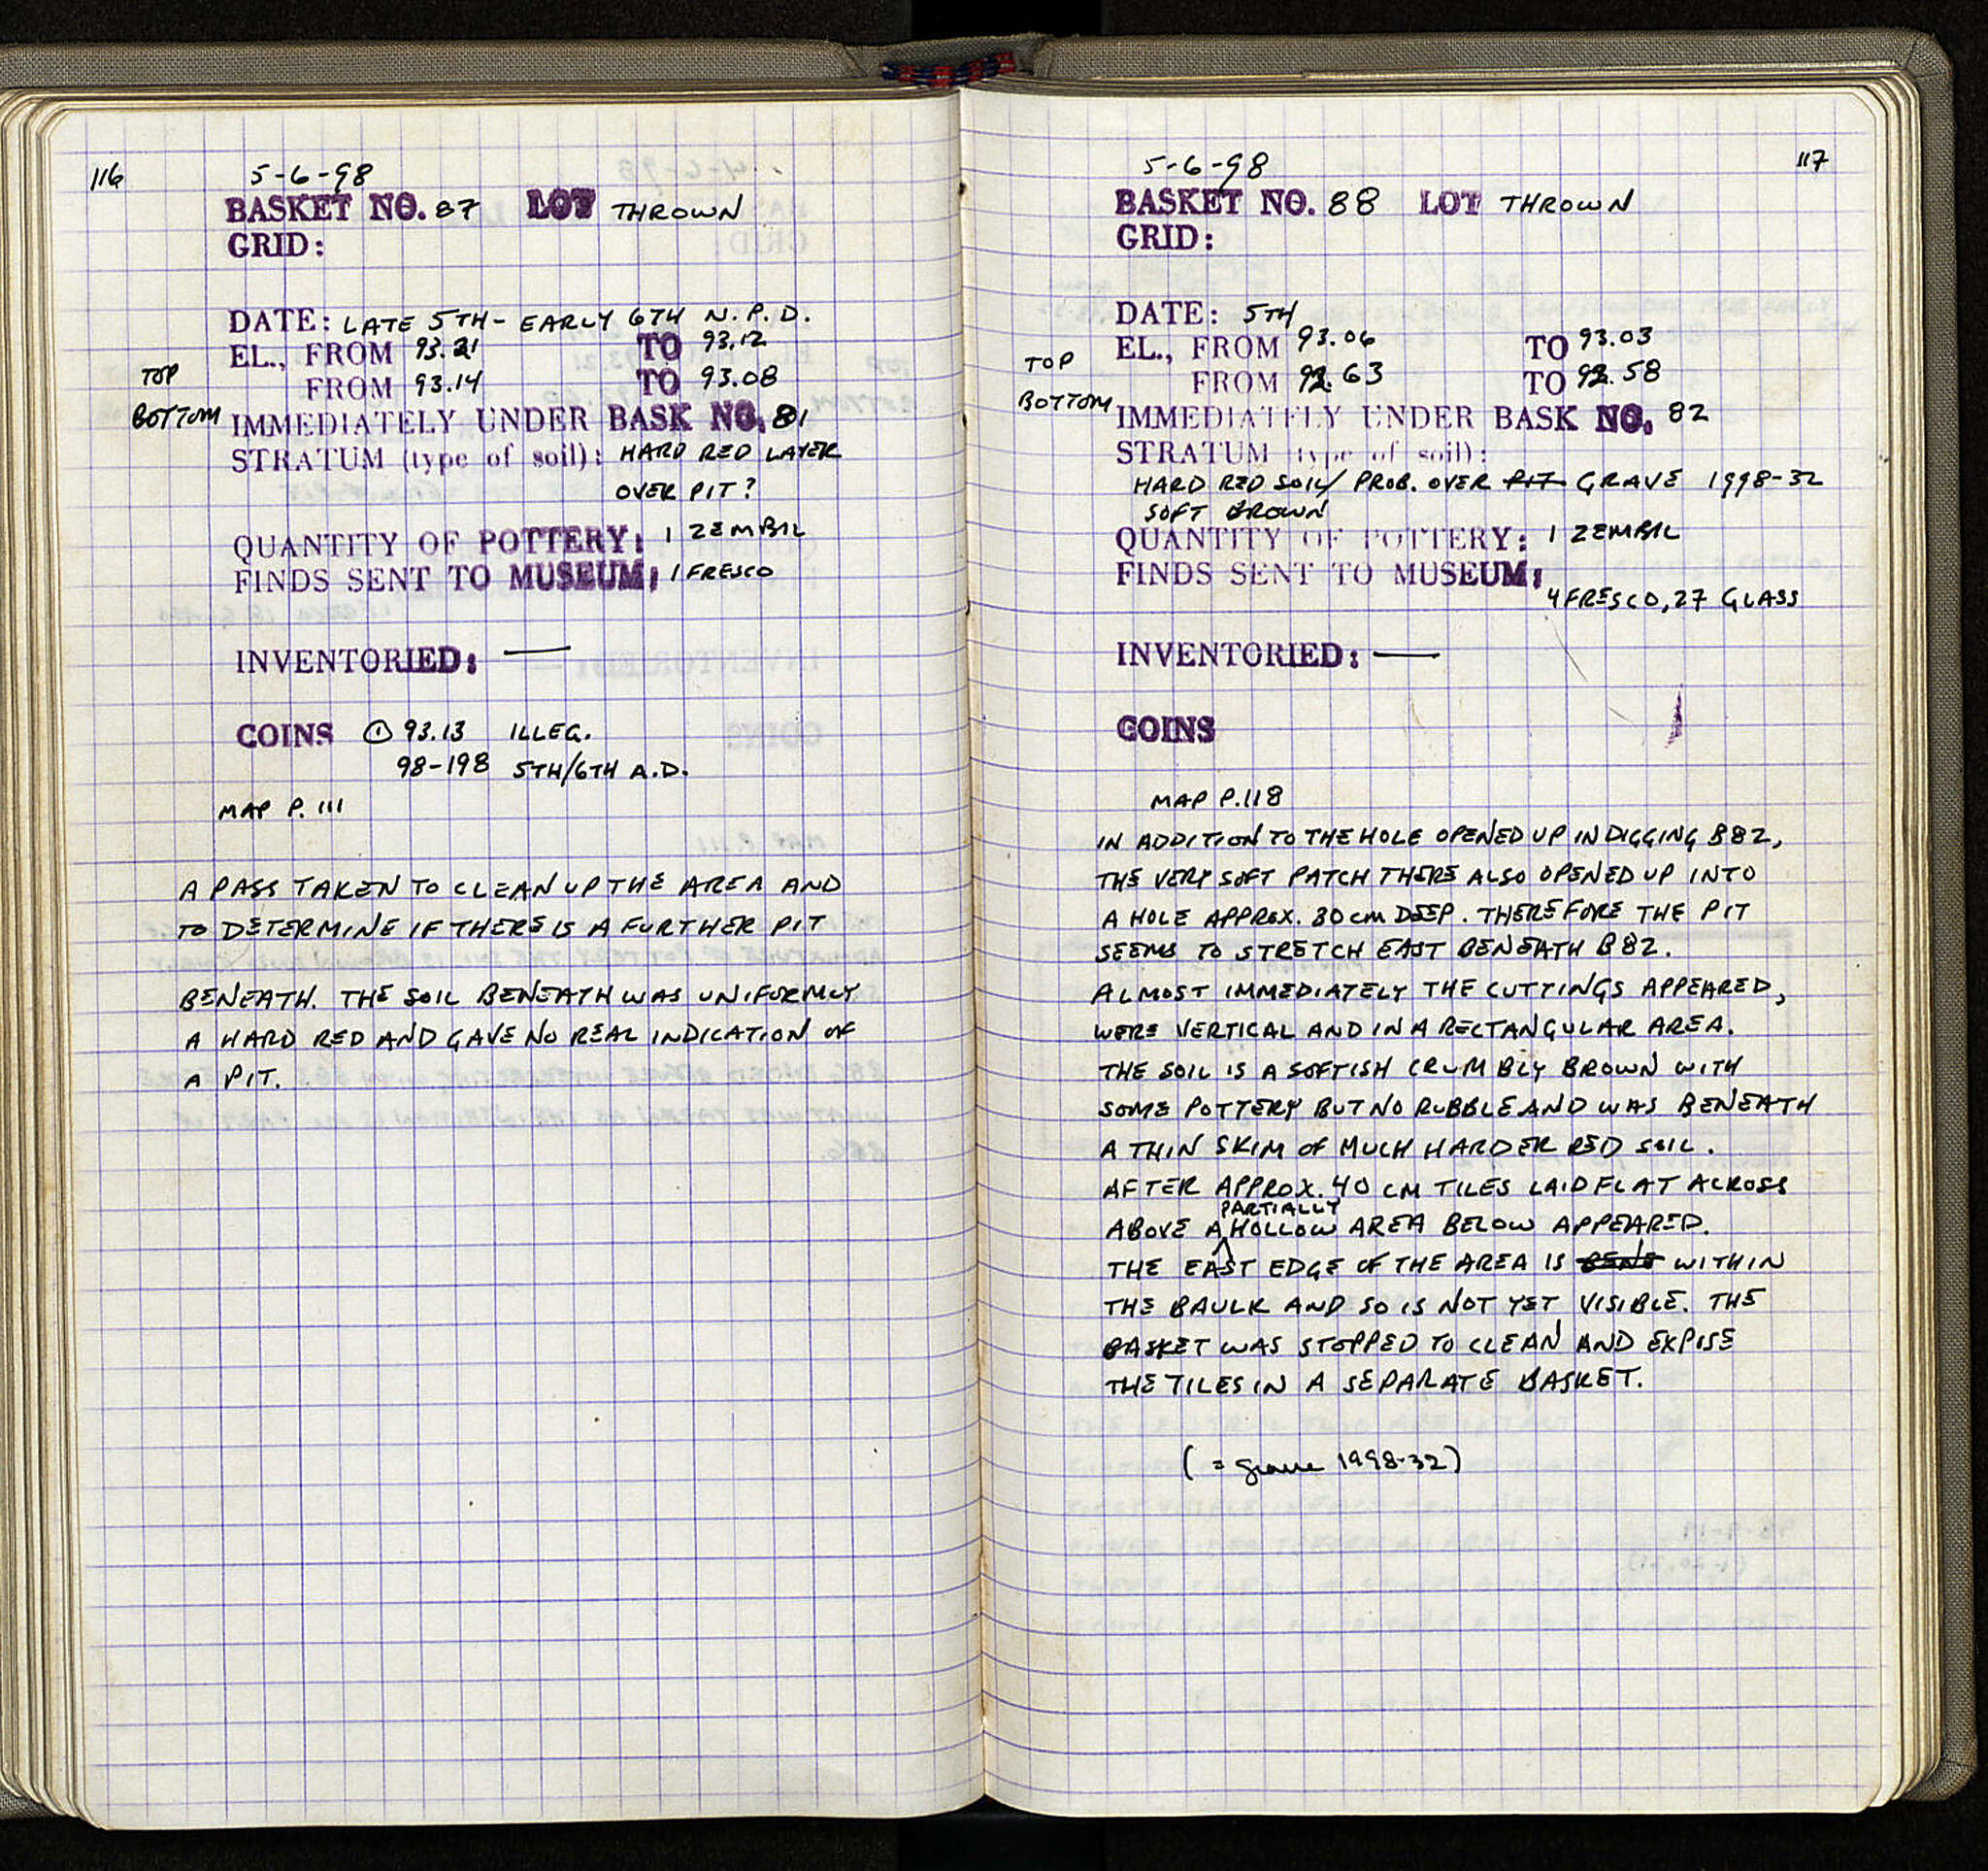 116
5-6-98
BASKET NO. 87 LOT THROWN
GRID:
DATE: LATE 5TH - EARLY 6TH N.P.D.
EL., FROM 93.21 TO 93.12
TOP
FROM 93.14 TO 93.08
BOTTOM
IMMEDIATELY UNDER BASK NO. 81
STRATUM (type of soil): HARD RED LAYER
OVER PIT?
QUANTITY OF POTTERY: 1 ZEMBIL
FINDS SENT TO MUSEUM: 1 FRESCO
INVENTORIED: —
COINS ① 93.13 ILLEG.
98-198 5TH/6TH A.D.
MAP P. 111
A PASS TAKEN TO CLEAN UP THE AREA AND
TO DETERMINE IF THERE IS A FURTHER PIT
BENEATH. THE SOIL BENEATH WAS UNIFORMLY
A HARD RED AND GAVE NO REAL INDICATION OF
A PIT.
117
5-6-98
BASKET NO. 88 LOT THROWN
GRID:
DATE: 5TH
EL., FROM 93.06 TO 93.03
TOP
FROM 92.63 TO 92.58
BOTTOM
IMMEDIATELY UNDER BASK NO. 82
STRATUM (type of soil):
HARD RED SOIL/ PROB. OVER PIT GRAVE 1998-32
SOFT BROWN
QUANTITY OF POTTERY: 1 ZEMBIL
FINDS SENT TO MUSEUM:
4 FRESCO, 27 GLASS
INVENTORIED: —
COINS
MAP P. 118
IN ADDITION TO THE HOLE OPENED UP IN DIGGING B82,
THE VERY SOFT PATCH THERE ALSO OPENED UP INTO
A HOLE APPROX. 30 cm DEEP. THEREFORE THE PIT
SEEMS TO STRETCH EAST BENEATH B82.
ALMOST IMMEDIATELY THE CUTTINGS APPEARED,
WERE VERTICAL AND IN A RECTANGULAR AREA.
THE SOIL IS A SOFTISH CRUMBLY BROWN WITH
SOME POTTERY BUT NO RUBBLE AND WAS BENEATH
A THIN SKIM OF MUCH HARDER RED SOIL.
AFTER APPROX. 40 CM TILES LAID FLAT ACROSS
PARTIALLY
ABOVE A HOLLOW AREA BELOW APPEARED.
THE EAST EDGE OF THE AREA IS BENE WITHIN
THE BAULK AND SO IS NOT YET VISIBLE. THE
BASKET WAS STOPPED TO CLEAN AND EXPISE
THE TILES IN A SEPARATE BASKET.
(= grave 1998-32)